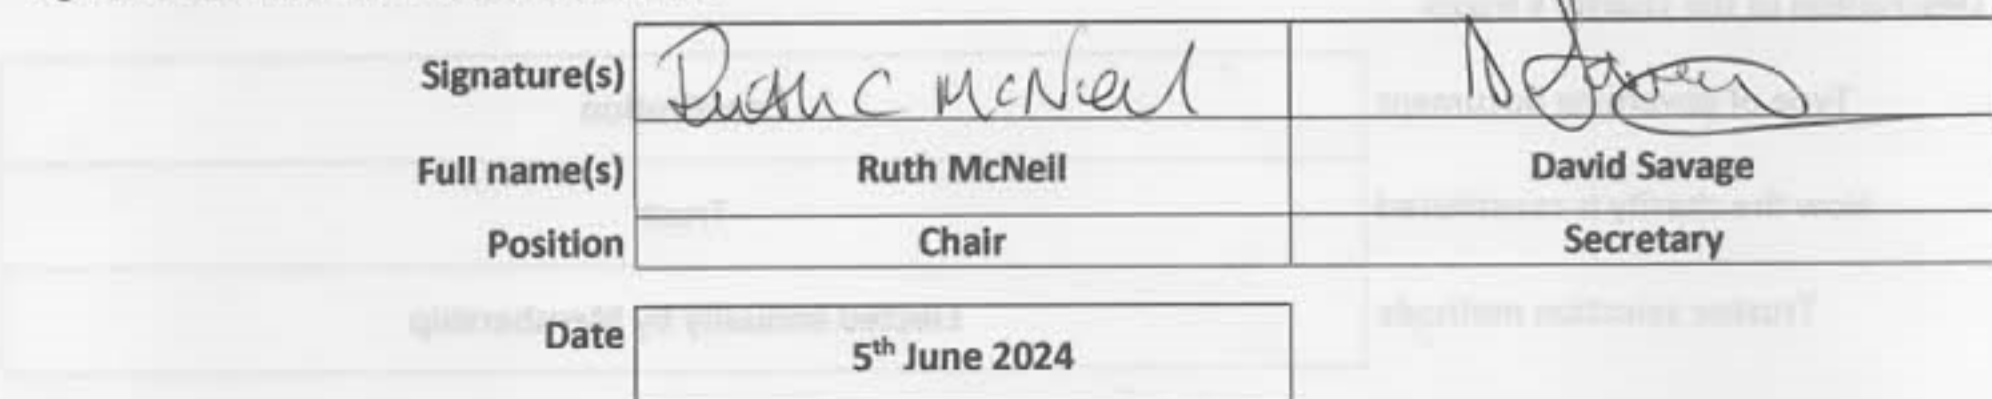 Signature(s) Ruth C McNeil D Savage
Full name(s) Ruth McNeil David Savage
Position Chair Secretary
Date 5th June 2024